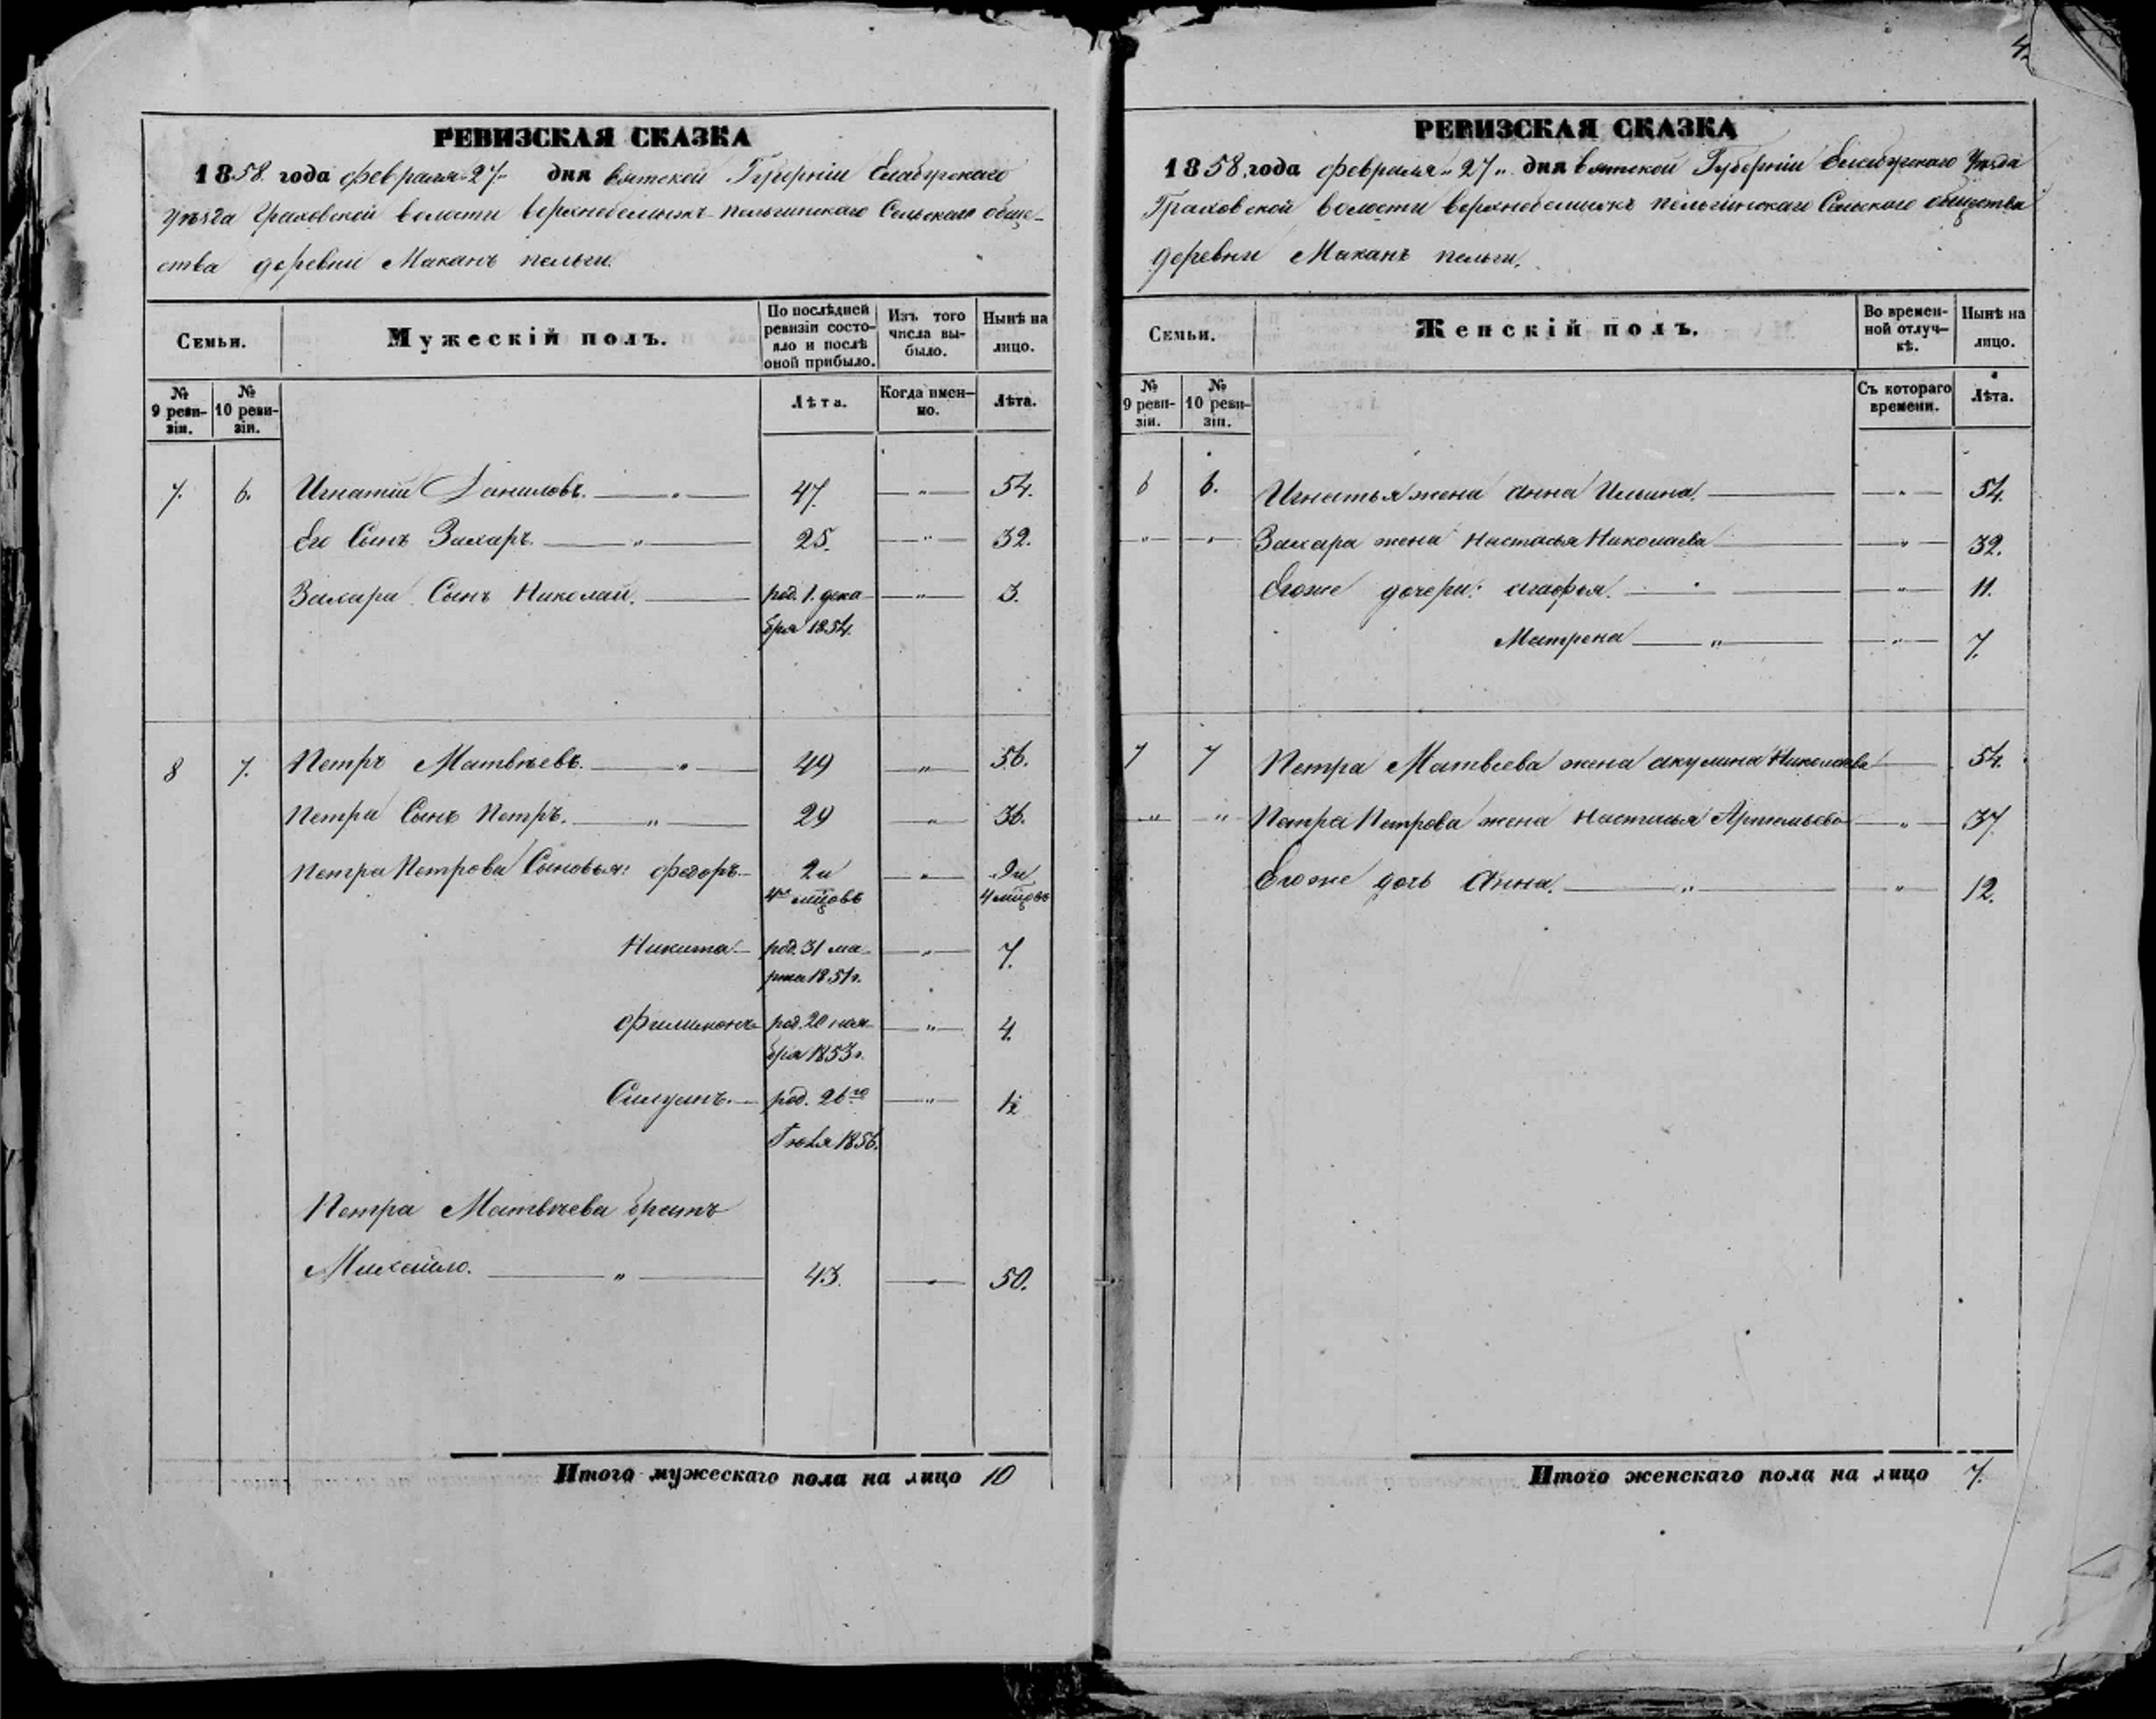 4.
РЕВИЗСКАЯ СКАЗКА
1858. года февраля 27 дня вятской Губерніи Елабугскаго
уѣзда Граховской волости верхне пельгинскаго Сельскаго обще-
ства деревни Маканъ пельги.
Семьи. Мужескій полъ. По послѣдней ревизіи состояло и послѣ оной прибыло. Изъ того числа выбыло. Нынѣ на лицо.
№ 9 ревизіи. № 10 ревизіи. Лѣта. Когда именно. Лѣта.
7. 6. Игнатій Даниловъ. — „ — 47. — „ — 54.
Его Сынъ Захаръ. — „ — 25. — „ — 32.
Захара Сынъ Николай. — род. 1. дека- — „ — 3.
бря 1854.
8 7. Петръ Матвѣевъ. — „ — 49 — „ — 56.
Петра Сынъ Петръ. — „ — 29 — „ — 36.
Петра Петрова Сыновья: Федоръ — 2 и — „ — 9 и
4 мцовъ 4 мцовъ
Никита — род. 31 ма- — „ — 7.
рта 1851 г.
Филимонъ — род. 20 ноя- — „ — 4.
бря 1853 г.
Силуанъ. — род. 26го — „ — 1½
Іюля 1856.
Петра Матвѣева братъ
Михайло. — „ — 43. — „ — 50.
Итого мужескаго пола на лицо 10
РЕВИЗСКАЯ СКАЗКА
1858 года февраля „27„ дня вятской Губерніи Елабугскаго Уѣзда
Граховской волости верхне пельгинскаго Сельскаго общества
деревни Маканъ пельги.
Семьи. Женскій полъ. Во временной отлучкѣ. Нынѣ на лицо.
№ 9 ревизіи. № 10 ревизіи. Съ котораго времени. Лѣта.
6 6. Игнатья жена Анна Ильина. — „ — 54.
„ „ Захара жена Настасья Николаева — „ — 32.
Егоже дочери: Агафья. — „ — 11.
Матрена — „ — „ — 7.
7 7 Петра Матвеева жена Акулина Николаева — 54.
„ „ Петра Петрова жена Настасья Артемьева — „ — 37
Егоже дочь Анна. — „ — „ — 12.
Итого женскаго пола на лицо 7.